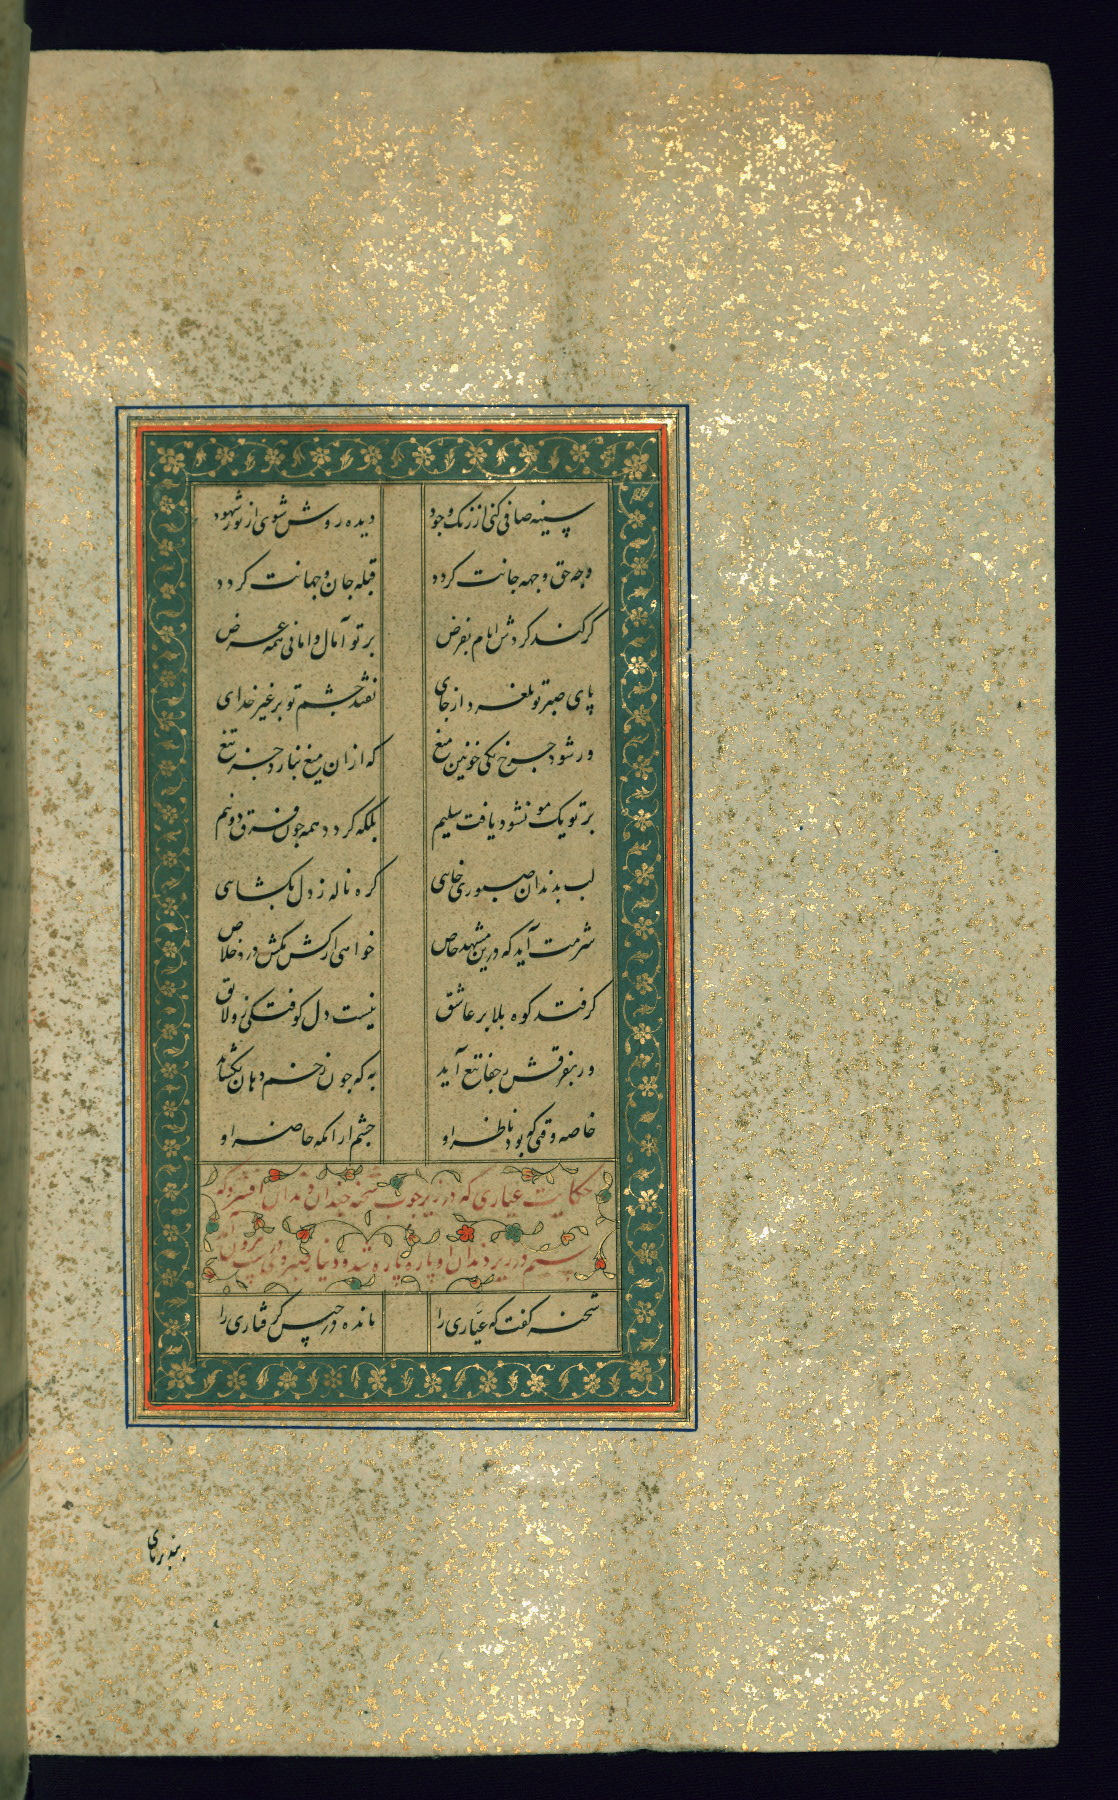 سینه صافی کنی از زنگ وجود دیده روشن شوی از نور شهود
وجه حق وجهه جانت کردد قبله جان و جهانت کردد
کر کند کردش ایام بفرض بر تو آمال و امانی همه عرض
پای صبر تو نلغزد از جای نفتد چشم تو بر غیر خدای
ور شود چرخ یکی خونین میغ که از ان میغ نبارد جز تیغ
بر تو یک مو نشود یافت سلیم بلکه کردد همه چون فرق دو نیم
لب بدندان صبوری خایی کره ناله ز دل نکشایی
شرمت آید که درین مشهد خاص خواهی از کش مکش درد خلاص
کر فتد کوه بلا بر عاشق نیست دل کوفتکی زو لایق
ور بفرقش ز جفا تیغ آید به که چون زخم دهان نکشاید
خاصه وقتی که بود ناظر او چشم ارانکه حاضر او
حکایت عیاری که در زیر چوب شحنه چندان دندان افشرد که
سیم در زیر دندان او پاره پاره شد و دینار
شحنه کفت که عیاری را مانده در حبس کرفتاری را
بند بر پای